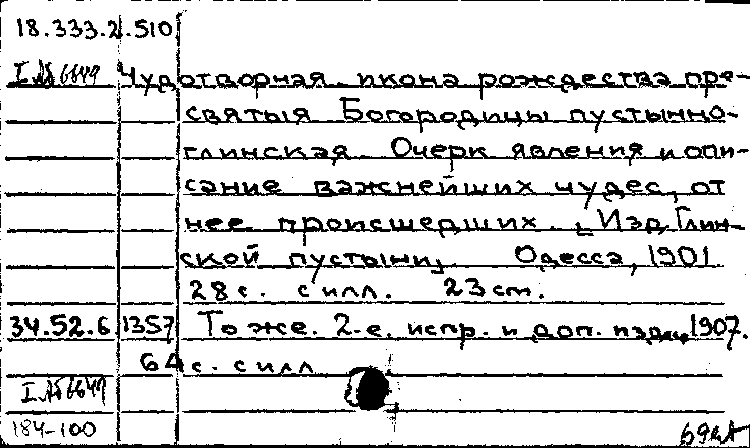 18.333.2.510
I №6649 Чудотворная икона рождества пре-
святыя Богородицы пустынно-
глинская. Очерк явления и опи-
сание важнейших чудес, от
нее происшедших. Изд. Глин-
ской пустыни, Одесса, 1901
28 с. с илл. 23 cm.
34.52.6 1357 То же. 2-е, испр. и доп. изд., 1907.
64 с. с илл
I №6649
184-100